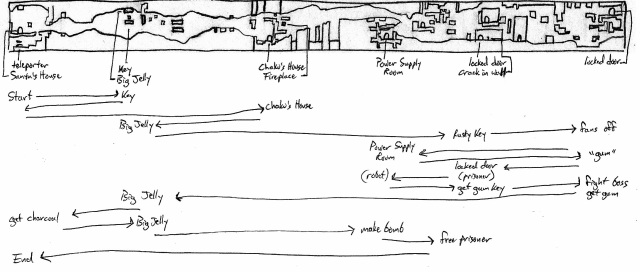 teleporter
Santa's House
Key
Big Jelly
Chaku's House
Fireplace
Power Supply
Room
locked door
crack in wall
locked door
Start
Key
Chaku's House
Big Jelly
Rusty Key
fans off
Power Supply
Room
"gum"
locked door
(prisoner)
(robot)
get gum key
fight boss
get gum
Big Jelly
get charcoal
Big Jelly
make bomb
free prisoner
End